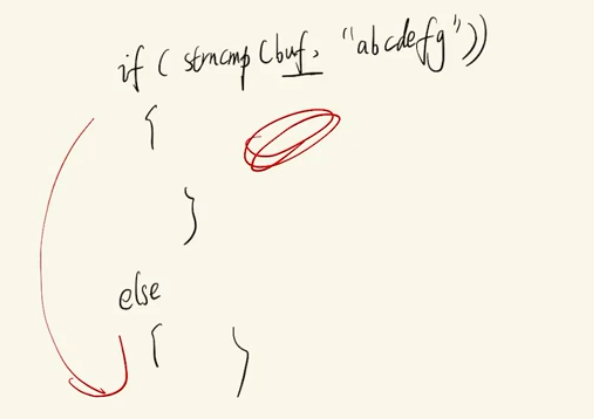 if ( strncmp (buf, "abcdefg"))
{
}
else
{ }